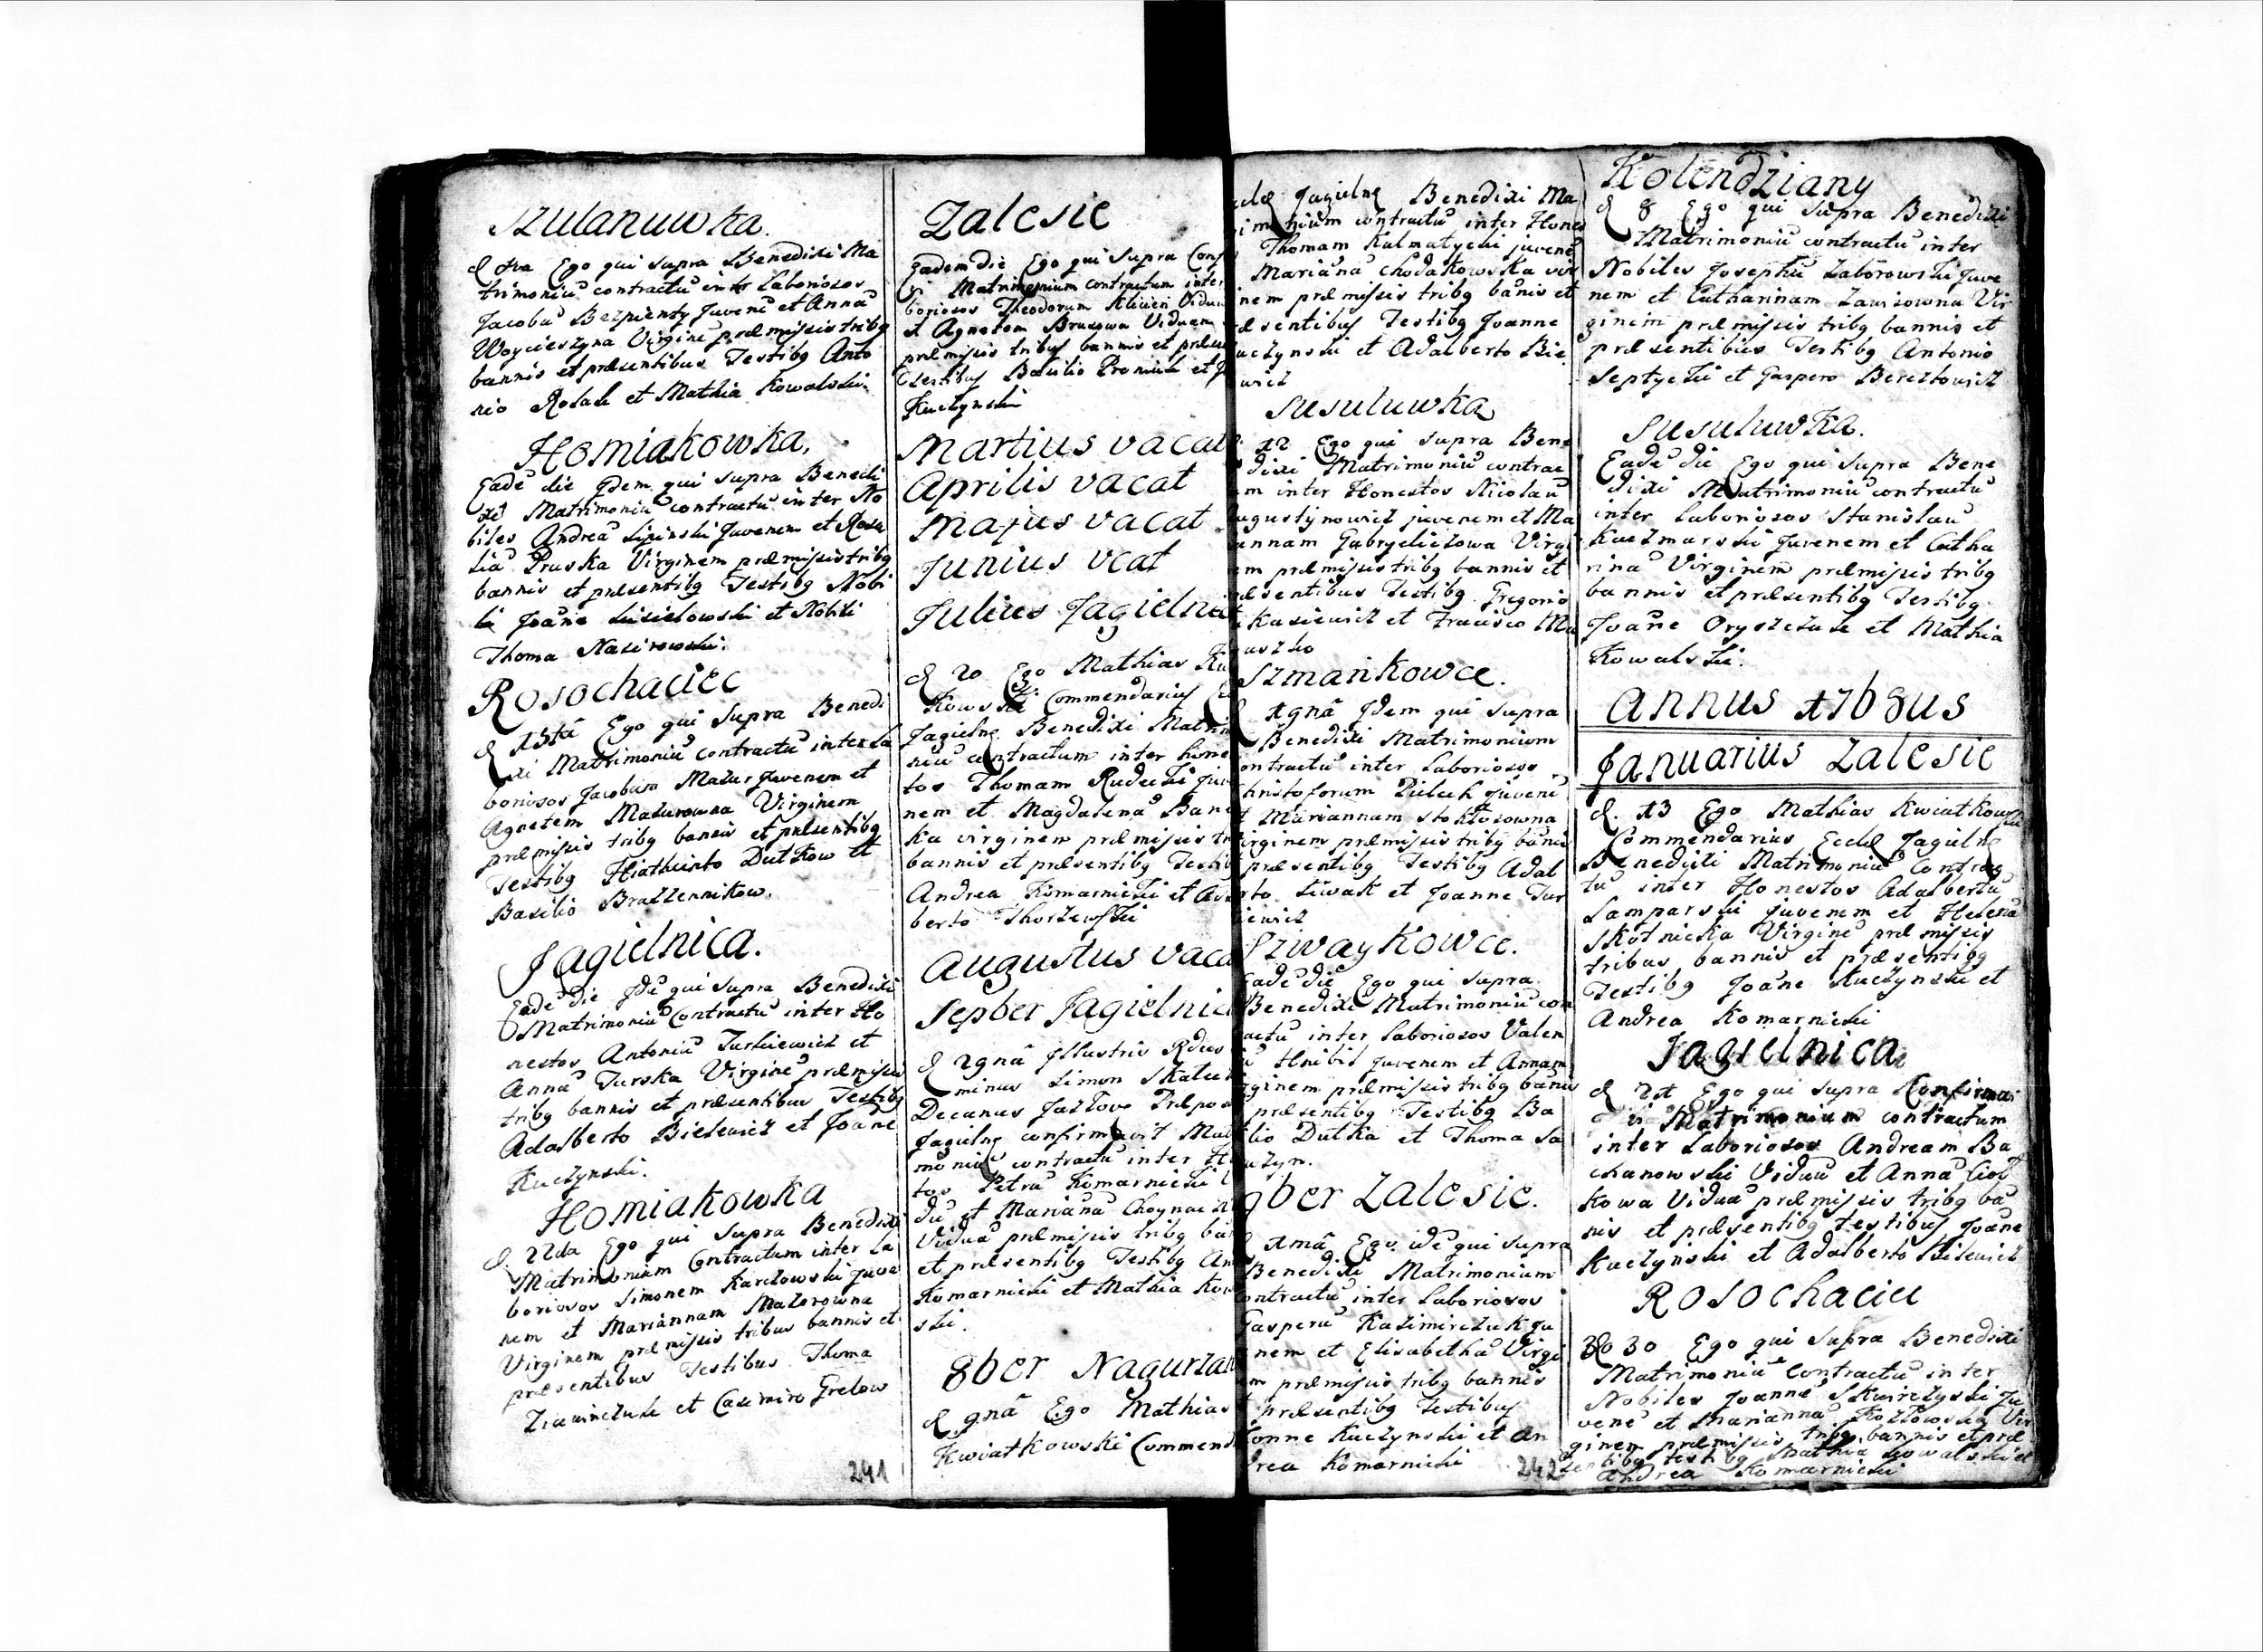 Szulanuwka.
d 1ra Ego qui supra Benedixi Ma
trimoniū contractū inter Laboriosos
Jacobū Bezpienty Juvenē et Annā
Woycieszyna Virginē præmissis tribq
bannis et præsentibus Testibq Anto
nio Rolak et Mathia Kowalski.
Homiakowka.
Eadē die Idem qui supra Benedi
xi Matrimoniū contractū inter No
biles Andreā Lipinski Juvenem et Rosa
liā Pruska Virginem præmissis tribq
bannis et præsentibq Testibq Nobi
li Joāne Lisielowski et Nobili
Thoma Nasirowski.
Rosochaciec
d 15tā Ego qui Supra Benedi
xi Matrimoniū Contractū inter La
boriosos Jacobum Mazur Juvenem et
Agnetem Mazurowna Virginem
præmissis tribq bannis et præsentibq
Testibq Hiathcinto Dutkow et
Basilio Brazzennikow.
Jagielnica.
Eadē die Idē qui supra Benedixi
Matrimoniū Contractū inter Ho
nestos Antoniū Turkiewicz et
Annā Turska Virginē præmissis
tribq bannis et præsentibus Testibq
Adalberto Bielewicz et Joāne
Kuczynski.
Homiakowka
d. 22da Ego qui supra Benedixi
Matrimonium Contractum inter La
boriosos Simonem Karczowski Juve
nem et Mariannam Mazorowna
Virginem præmissis tribus bannis et
præsentibus Testibus Thoma
Ziawinczuk et Casimiro Grelow
241
Zalesie
Eadem die Ego qui supra Conf
Matrimonium contractum inter
boriosos Theodorum Kliwen Viduu
et Agnetem Brusowa Viduem
præmissis tribus bannis et præse
Testibus Basilio Proniuk et J
Kuczynski
Martius vacat
Aprilis vacat
Majus vacat
Junius vcat
Julius Jagielni
d 20 Ego Mathias Kw
kowski Commendarius
Jagielnę Benedixi Matrim
niū contractum inter hone
tos Thomam Rudecki Juv
nem et Magdalenā Ban
ka virginem præmissis tr
bannis et præsentibq Testib
Andrea Komarnicki et Ada
berto Thorzewski
Augustus vaca
Sepber Jagielnic
d 29nā Illustris Rdus
minus Simon Skalu
Decanus Jazlov Præpos
Jagielnę confirmavit Mat
moniū contractū inter Ho
tos Petrū Komarnicki
du et Mariānā Choynac
Viduā præmissis tribq ban
et præsentibq Testibq An
Komarnicki et Mathia Kow
ski.
8ber Nagurzan
d 9nā Ego Mathias
Kwiatkowski Commend
clæ Jagielnę Benedixi Ma
imonium contractū inter Hones
Thomam Kalmatycki juvenē
Mariānā Chodakowska vir
inem præmissis tribq banis et
æsentibus Testibq Joanne
uczynski et Adalberto Bie
wicz
Susuluwka
12 Ego qui supra Bene
dixi Matrimoniū contrac
m inter Honestos Nicolaū
ugustynowicz juvenem et Ma
annam Gabryeliczowa Virgi
em præmissis tribq bannis et
æsentibus Testibq Gregorio
Kasiewicz et Francisco Mu
uszko
Szmankowce.
19nā Idem qui supra
Benedixi Matrimonium
ontractū inter Laboriosos
hristoforum Pieluch juvenē
t Mariannam Stoktosowna
irginem præmissis tribq banis
præsentibq Testibq Adal
rto Liwak et Joanne Tur
iewicz
Szwaykowce.
Eadē die Ego qui supra
Benedixi Matrimoniū con
actū inter Laboriosos Valen
ū Hnibit Juvenem et Annam
irginem præmissis tribq banis
præsentibq Testibq Ba
lio Dutka et Thoma Sa
uzyn.
9ber Zalesie.
1mā Ego idē qui supra
Benedixi Matrimonium
ontractū inter Laboriosos
Gasperū Kazimirczuk Ju
nem et Elisabethā Virgi
m præmissis tribq bannis
t præsentibq Testibus
Joanne Kuczynski et An
rea Komarnicki
242
Kolendziany
d 8 Ego qui supra Benedixi
Matrimoniū contractū inter
Nobiles Josephū Zaborowski Juve
nem et Catharinam Zawisowna Vir
ginem præmissis tribq bannis et
præsentibus Testibq Antonio
Septycki et Gaspero Berezowicz
Susuluwka.
Eadē die Ego qui supra Bene
dixi Matrimoniū contractū
inter Laboriosos Stanislaū
Kaczmarski Juvenem et Catha
rinā Virginem præmissis tribq
bannis et præsentibq Testibq
Joāne Oryszczuk et Mathia
Kowalski.
Annus 1768us
Januarius Zalesie
d. 13 Ego Mathias Kwiatkowski
Commendarius Ecclæ Jagielnę
Benedixi Matrimoniū Contrac
tū inter Honestos Adalbertū
Lamparski juvenem et Helenā
Skotnicka Virginē præmissis
tribus bannis et præsentibq
Testibq Joāne Kuczynski et
Andrea Komarnicki
Jagielnica
d 21 Ego qui supra Confirmavi
Matrimonium contractum
inter Laboriosos Andream Ba
chanowski Viduū et Annā Ciol
kowa Viduā præmissis tribq ba
nis et præsentibq testibus Joāne
Kuczynski et Adalberto Bilewicz
Rosochaciec
d 30 Ego qui supra Benedixi
Matrimoniū Contractū inter
Nobiles Joannē Skwirczynski Ju
venē et Mariannā Kozlowska Vir
ginem præmissis tribq bannis et præ
sentibq testibq Mathia Kowalski et
Andrea Komarnicki